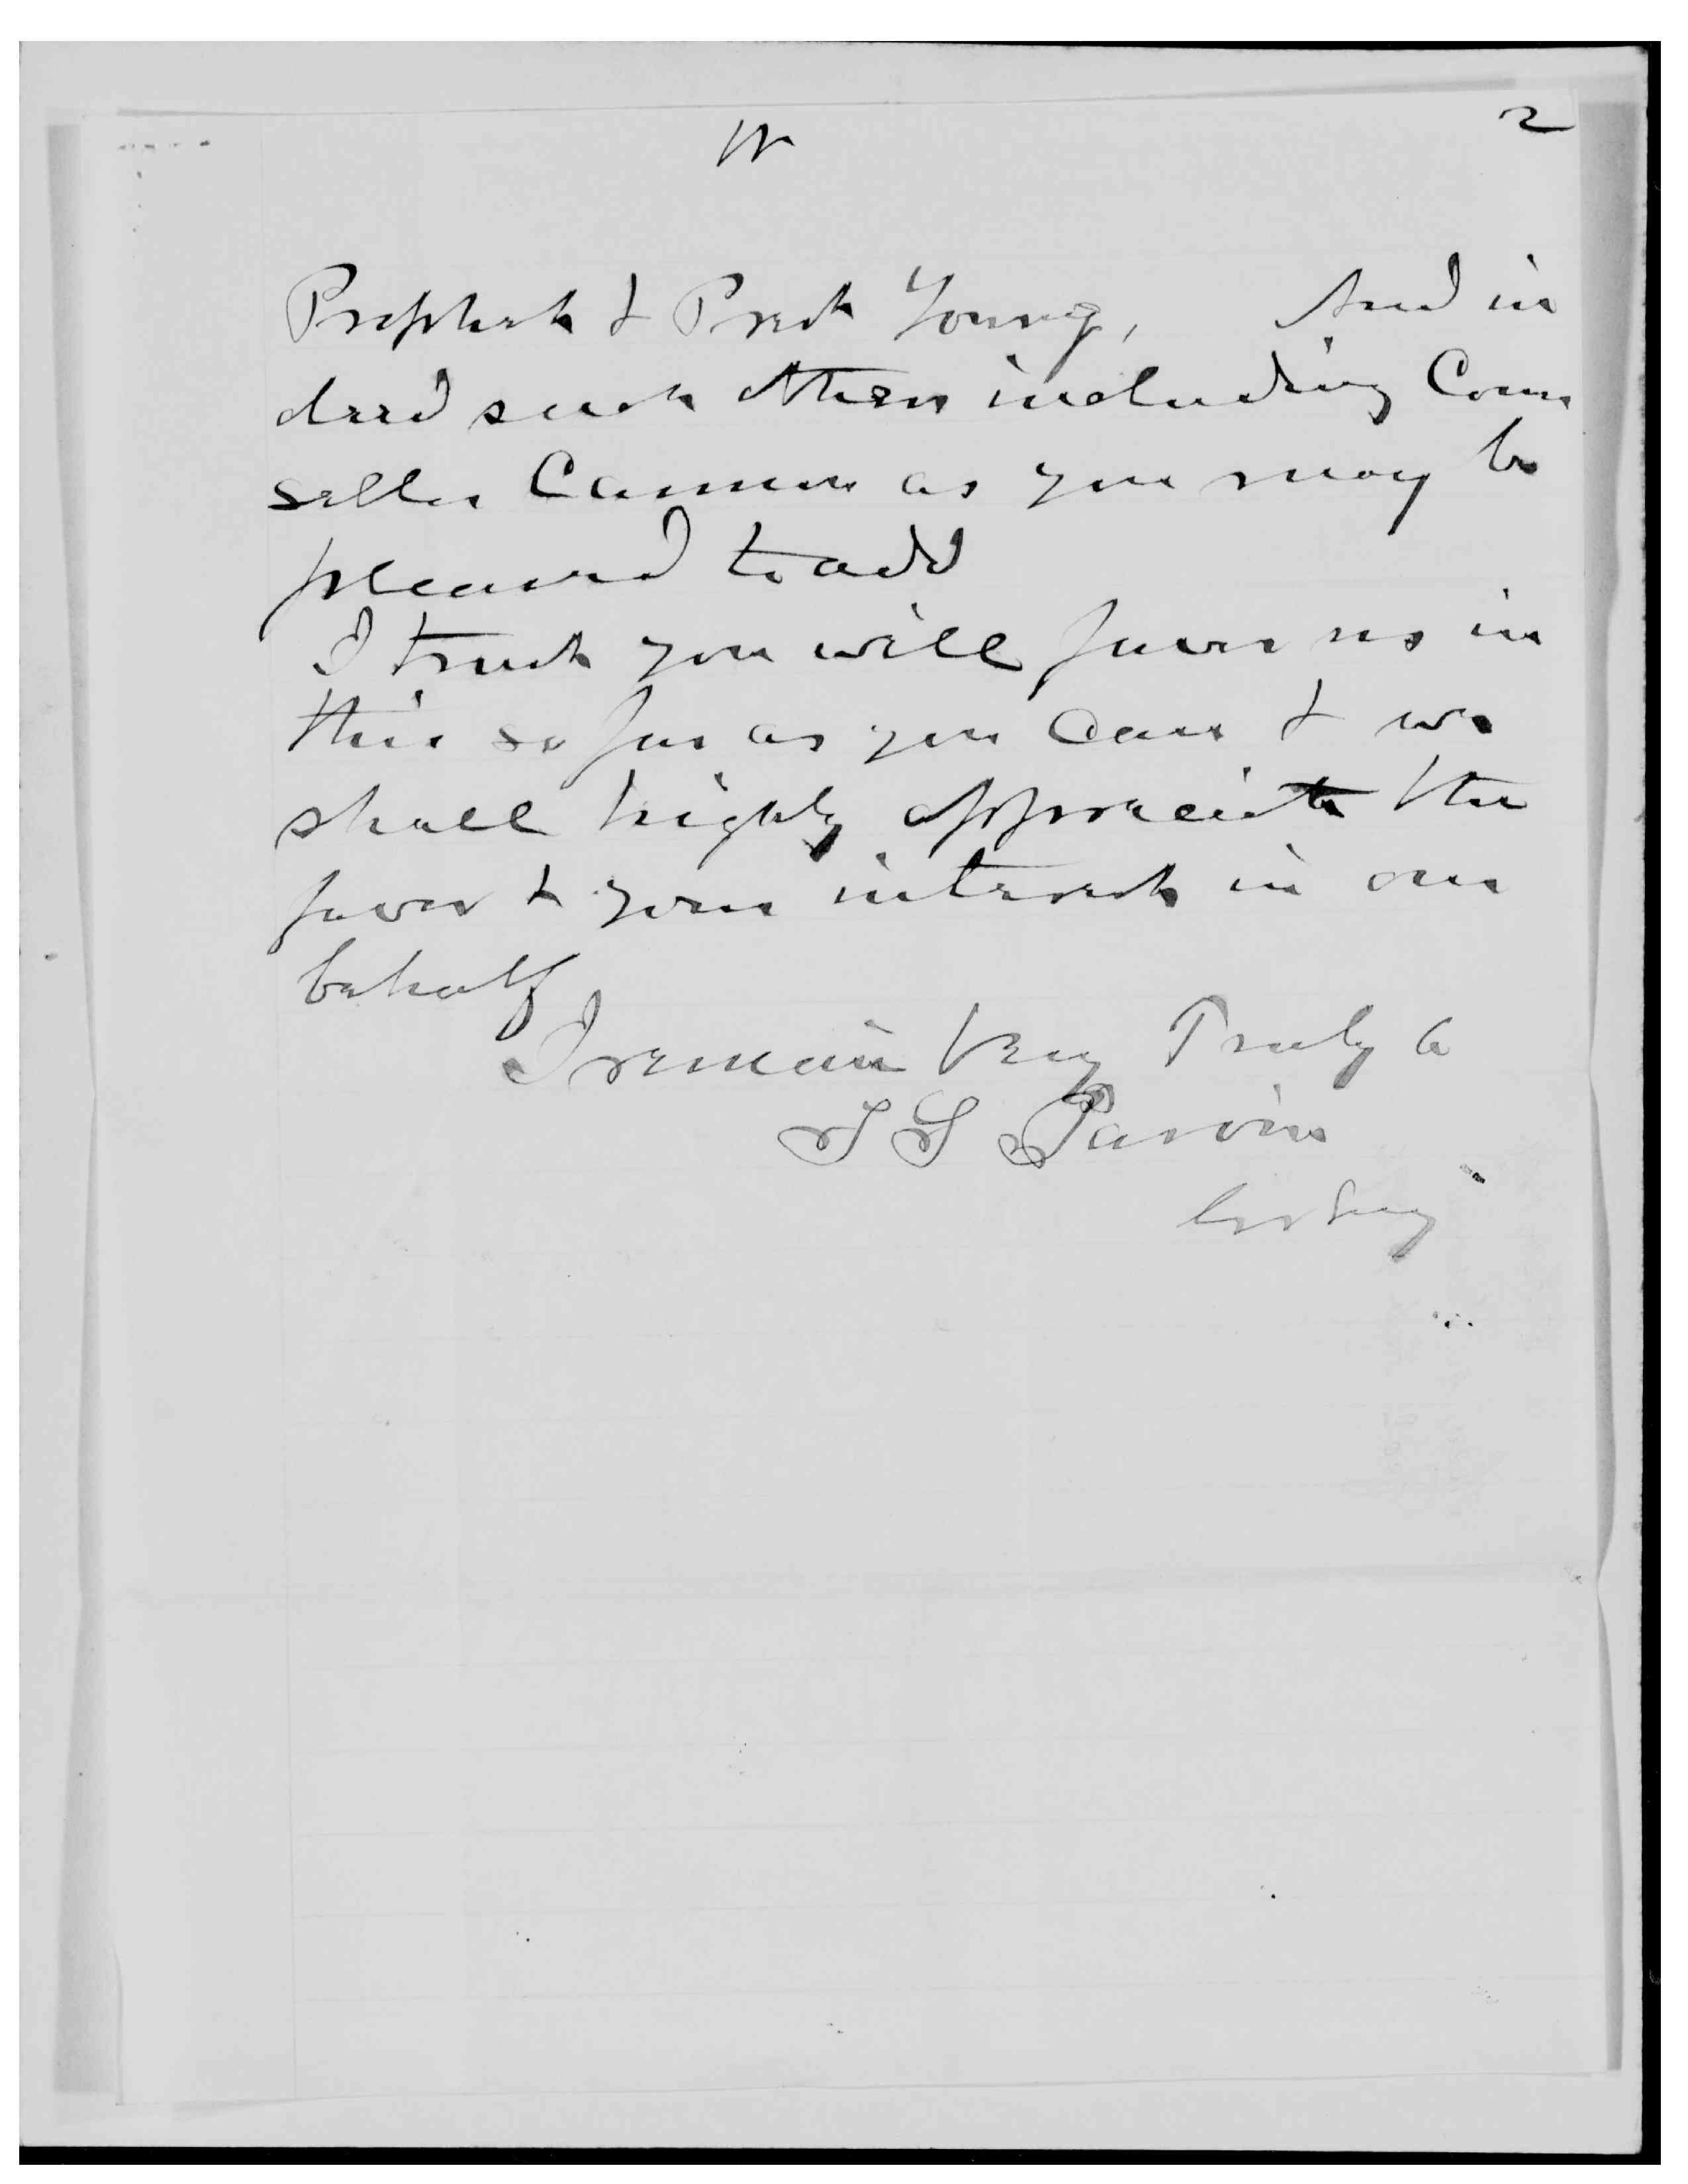 W 2
Prophet & Prest Young, And in
deed such others including Coun
sellor Cannon as you may be
pleased to add
I trust you will favor us in
this so far as you can & we
shall highly appreciate the
favor & your interest in our
behalf
I remain Very Truly
T S Parvin
Cor Secy